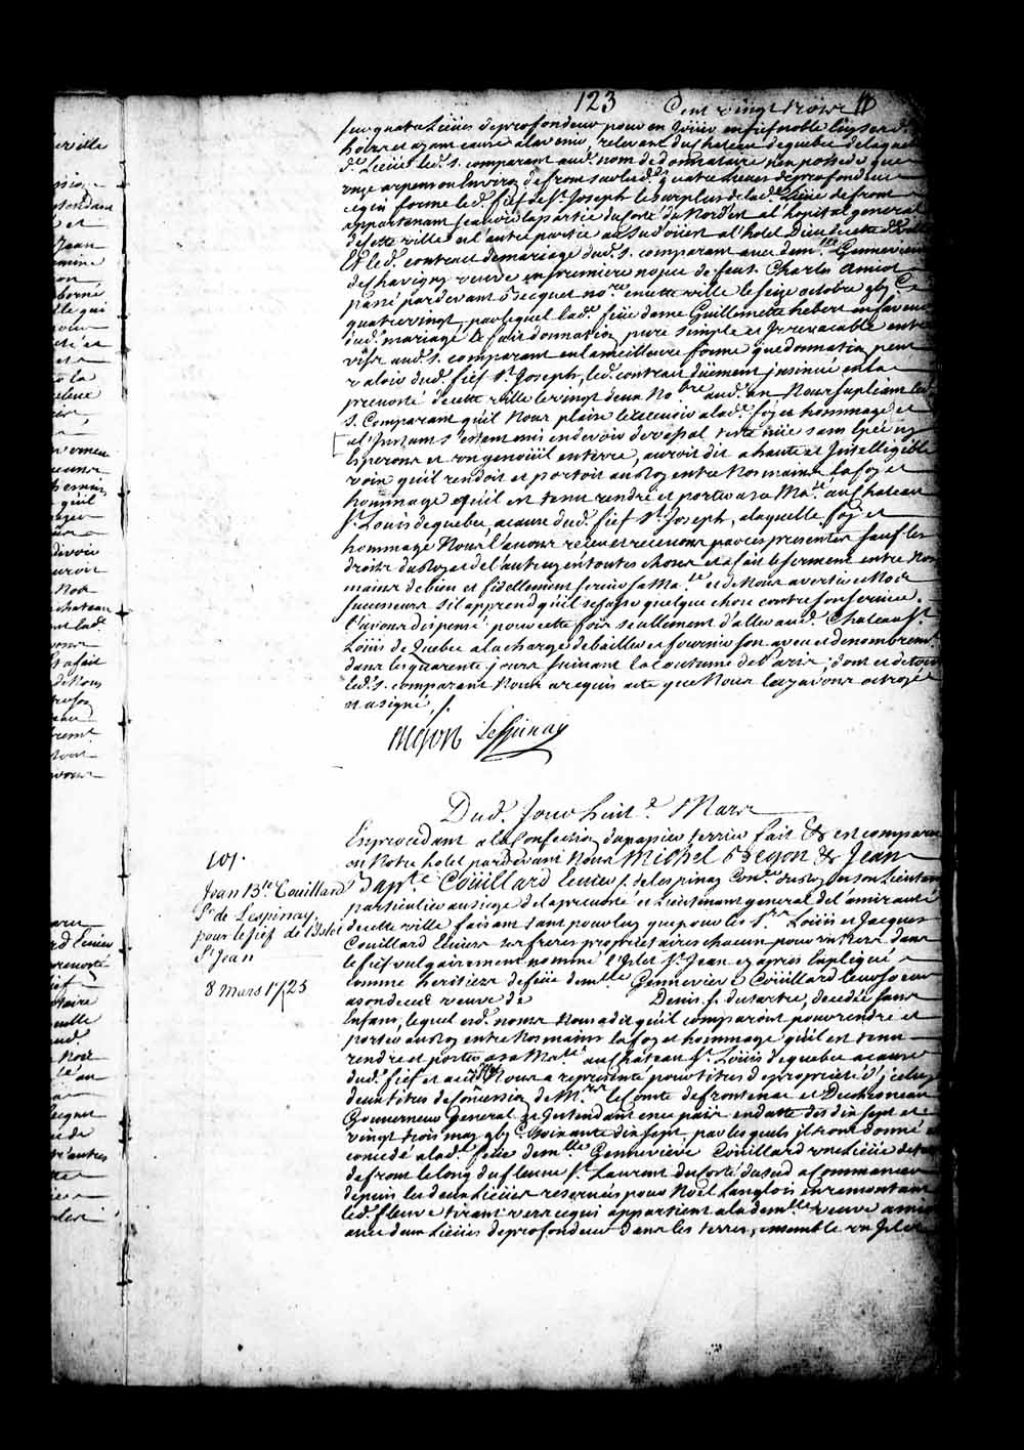 123 Cent vingt trois
sur quatre Lieües de profondeur pour en Joüir en fief noble luy ses d.
hoirs et ayant cause a lavenir, relevant du chateau de quebec de laquelle
d.e Lieüe led. s. comparant aud. nom de donnataire n'en possede que
onze arpens ou Environ de front sur lesd. quatre Lieües de profondeur
ce qui forme led. fief de St. Joseph le surplus de lad.e Lieüe de front
appartenant scavoir la partie du costé du Nord'est al hopital general
de cette ville et l'autre partie au Sud oüest a l'hotel Dieu de cette d.e ville
Et led. contract de mariage dud. s. comparant avec dem.lle Gennevieve
de chavigny veuve en premiere nopce de feu s. Charles Amiot
passé pardevant Becquet no.re en cette ville le seize octobre gbj C
quatrevingt, par lequel lad.e feüe dame Guillemette hebert en faveur
dud. mariage le fair donnation pure simple et Irrevocable entre
vifs aud. s. comparant en la meilleure forme que donnation peut
valoir dud. fief St. Joseph, led. contract düement insinué en la
prevosté de cette ville le vingt deux No.bre aud. an Nous supliant led.
s. Comparant qu'il Nous plaise le recevoir a lad.e foy et hommage et
a l'Instant s'estant mis en devoir de vassal teste nüe sans Epée ny
Esperons et un genoüil en terre, auroit dit a haute et Intelligible
voix qu'il rendoit et portoit au Roy entre Nos mains la foy et
hommage qu'il est tenu rendre et porter a sa Ma.té au chateau
St. Louis de quebec a cause dud. fief St. Joseph, a laquelle foy et
hommage Nous l'avons receu et recevons par ces presentes sauf les
droits du Roy et de l'autruy en toutes choses et a fait le serment entre Nos
mains de bien et fidellement servir sa Ma.té et de Nous avertir et Nos
successeurs s'il apprend qu'il se fasse quelque chose contre son service.
L'avons dispensé pour cette fois seullement d'aller aud. Chateau St.
Loüis de Quebec a la charge de bailler et fournir son aveu et denombrem.t
dans les quarente jours suivant la Coutume de Paris, dont et de tout
led. s. comparant Nous a requis acte que Nous luy avons octroyé
et a signé, /.
Begon Lespinay
Dud. Jour huit.e Mars
101.
Jean B.te Couillard
Sr. de Lespinay.
pour le fief de l'Islet
St. Jean
8 Mars 1725
En procedant a la Confection du papier terrier fait &a est comparu
en Notre hotel pardevant Nous Michel Begon &a Jean
Bap.te Coüillard Ecuier s. de Lespinay Con.er du Roy et son Lieutenant
particulier au siege de la prevosté et Lieutenant general de l'amirauté
de cette ville faisant tant pour luy que pour les Srs. Loüis et Jacques
Couillard Ecuiers ses freres proprietaires chacun pour un tiers dans
le fief vulgairement nommé l'Islet St. Jean cy après Expliqué
comme heritiers de feüe dem.lle Gennevieve Coüillard leur soeur
a son deces veuve de Denis s. du tartre, decedée sans
Enfans, lequel esd. noms Nous a dit qu'il comparoist pour rendre et
porter au Roy entre Nos mains la foy et hommage qu'il est tenu
rendre et porter a sa Ma.té au chateau St. Loüis de quebec a cause
dud. fief et Nous a representé pour titres de proprieté d'jceluy
deux titres de Concession de M.rs le Comte de frontenac et Duchesneau
Gouverneur General et Intendant en ce païs en datte des dix sept et
vingt trois may gbj C. soixante dix sept, par lesquels jls ont donné et
concedé a lad.e feüe dem.lle Gennevieve Couillard une Lieüe de terre
de front le long du fleuve St. Laurent du Costé du sud a Commencer
depuis les deux Lieües reservées pour Noël Langlois en remontant
led. fleuve tirant vers ce qui appartient a la dem.lle veuve amiot
avec deux Lieües de profondeur dans les terres, ensemble un Islet